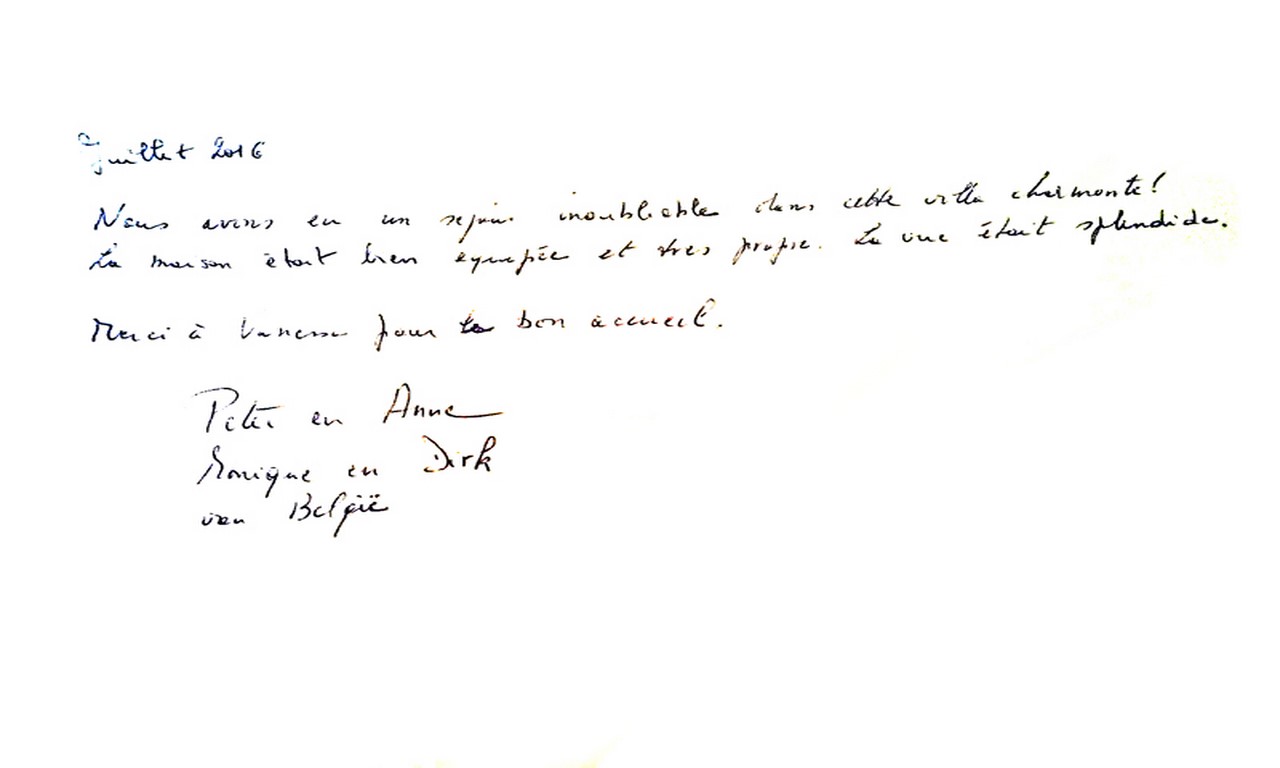 Juillet 2016
Nous avons eu un sejour inoubliable dans cette villa charmante!
La maison était bien equipée et tres propre. La vue était splendide.
Merci à Vanessa pour le bon accueil.
Peter en Anne
Monique en Dirk
van België